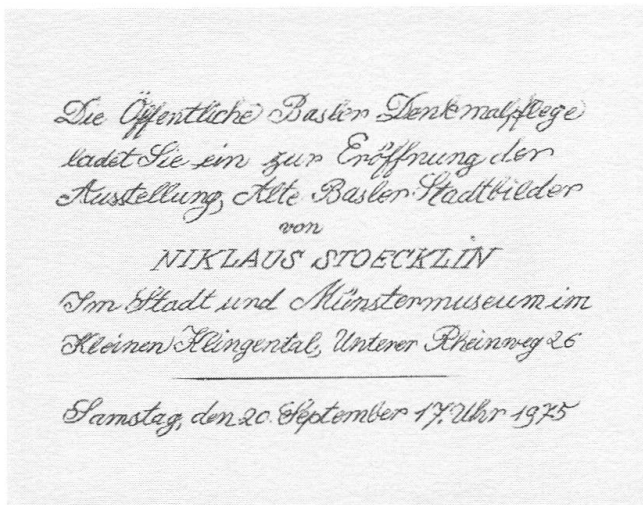 Die Öffentliche Basler Denkmalpflege
ladet Sie ein zur Eröffnung der
Ausstellung, Alte Basler Stadtbilder
von
NIKLAUS STOECKLIN
Im Stadt und Münstermuseum im
Kleinen Klingental, Unterer Rheinweg 26
Samstag, den 20. September 17. Uhr 1975